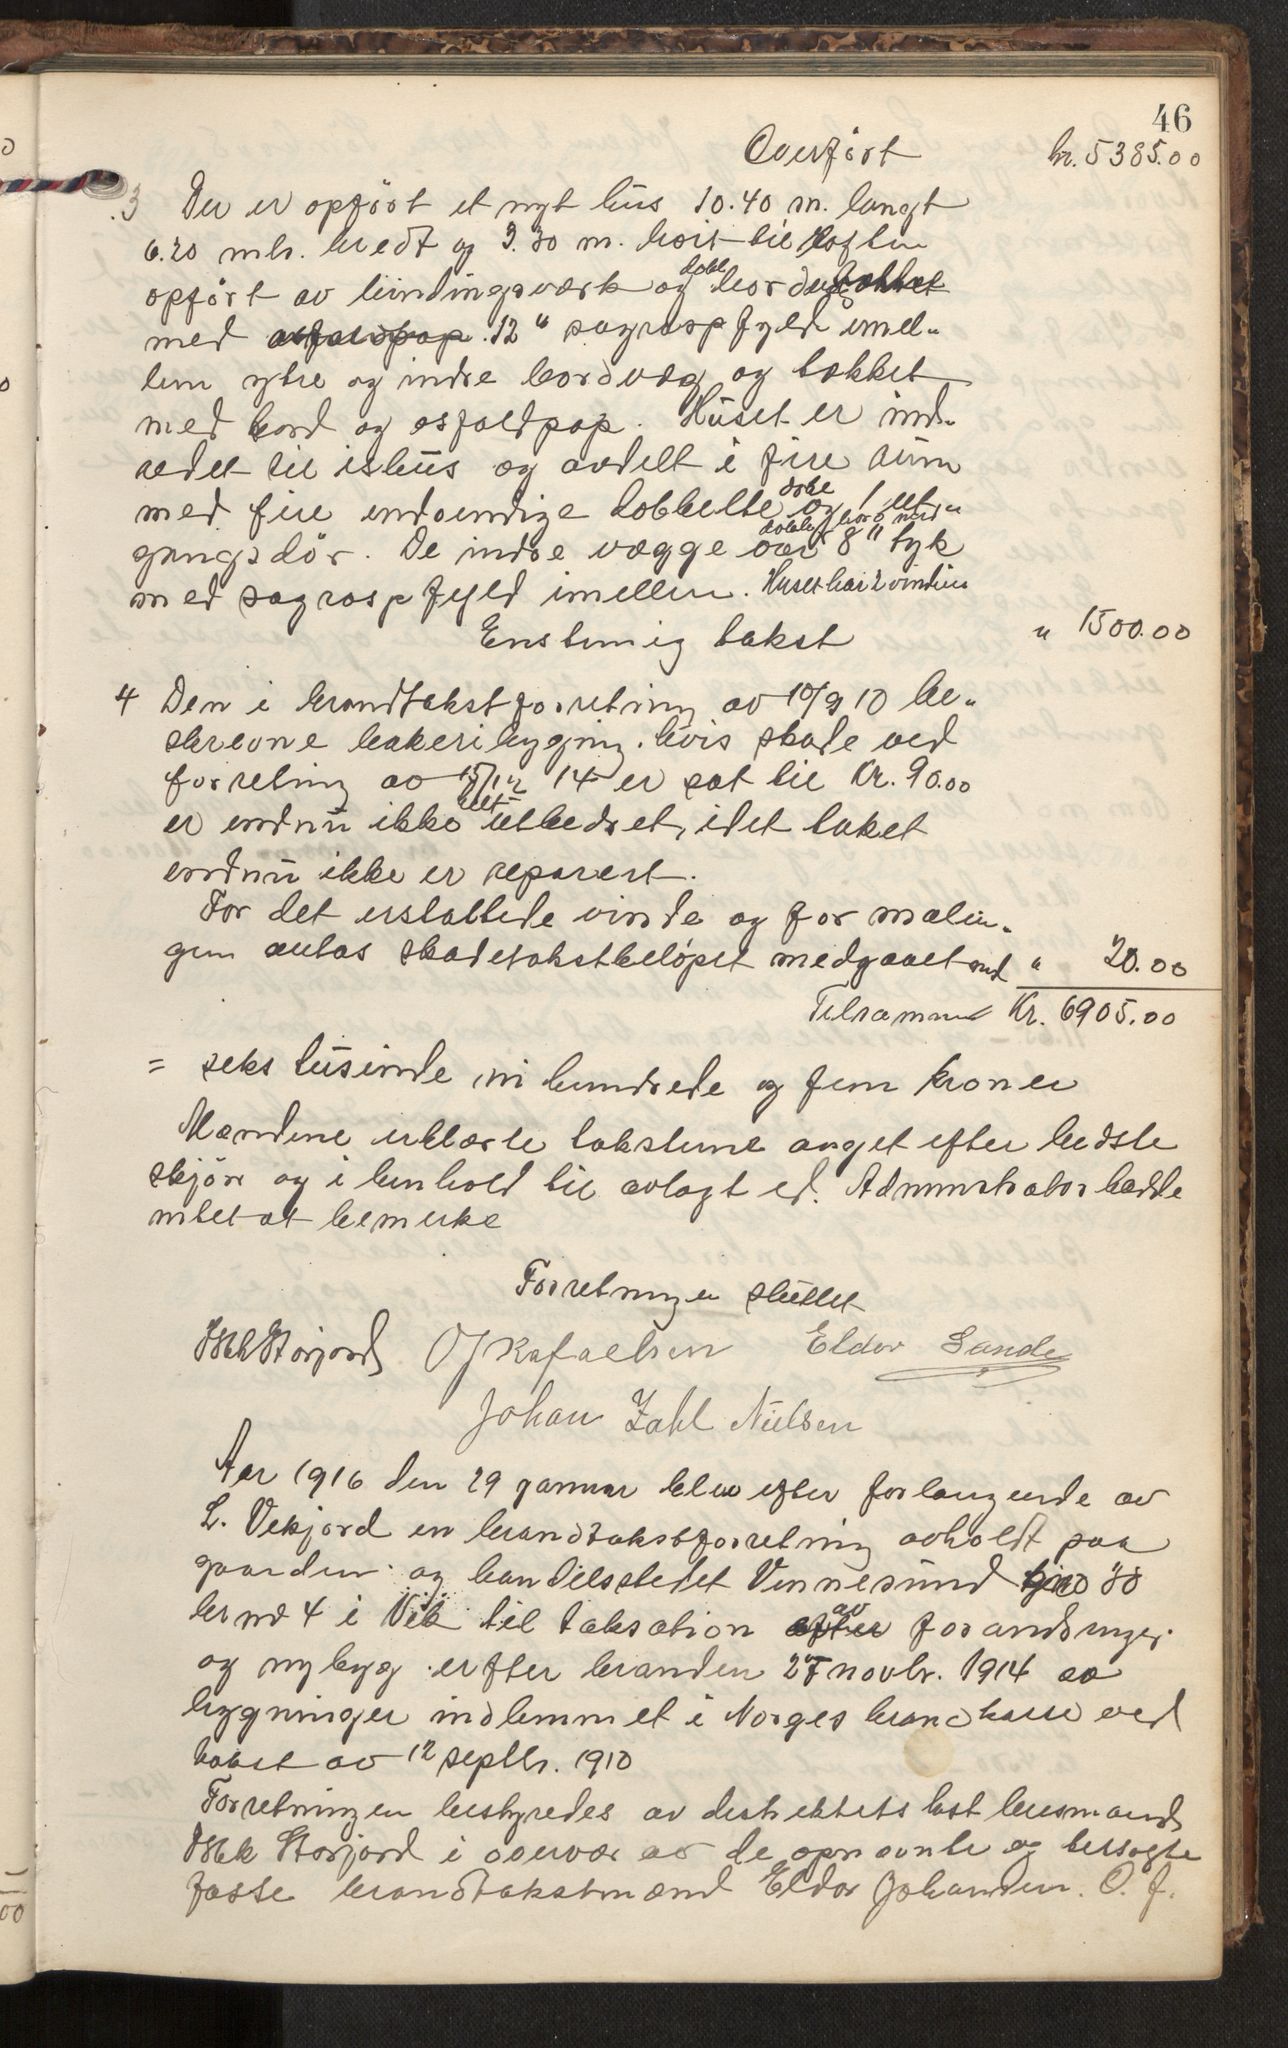 46
Overført kr. 5385.00
3 Der er opført et nyt hus 10.40 m. langt
6.20 mtr. bredt og 3.30 m. høit til loften
opført av bindingsverk og dobl bord
med 12" sagraspfyld imel-
lem ytre og indre bordvæg og tækket
med bord og asfaldpap. Huset er ind-
redet til ishus og avdelt i fire rum
med fire indvendige dobbelte døre og 1 ut-
gangsdør. De indre vægge av dobbelt bord med 8" tyk
med sagraspfyld imellem. Huset har 2 vinduer
Enstemig takst " 1500.00
4 Den i brandtakstforretning av 10/9 10 be-
skrevne bakeribygning. hvis skade ved
forretning av 15/12 14 er sat til Kr. 90.00
er endnu ikke helt utbedret, idet taket
endnu ikke er reparert.
For det erstattede vindu og for malin-
gen antas skadetakstbeløpet medgaaet med " 20.00
Tilsammen Kr. 6905.00
= seks tusinde ni hundrede og fem kroner
Mændene erklærte taksterne avget efter bedste
skjøn og i henhold til avlagt ed. Administrator hadde
intet at bemerke
Forretningen sluttet
Storjord O J Rafaelsen Eldor Sande
Johan Zahl Nielsen
Aar 1916 den 29 januar blev efter forlangende av
L. Vikjord en brandtakstforretning avholdt paa
gaarden og handelsstedet Vennesund
br no 4 i Vik til taksation av forandringer
og nybyg efter branden 27 novbr. 1914 av
bygninger indlemmet i Norges brandkasse ved
takst av 12 septbr. 1910
Forretningen bestyredes av distriktets lensmand
Storjord i overvær av de opnævnte og
faste brandtakstmænd Eldor Johansen. O. J.